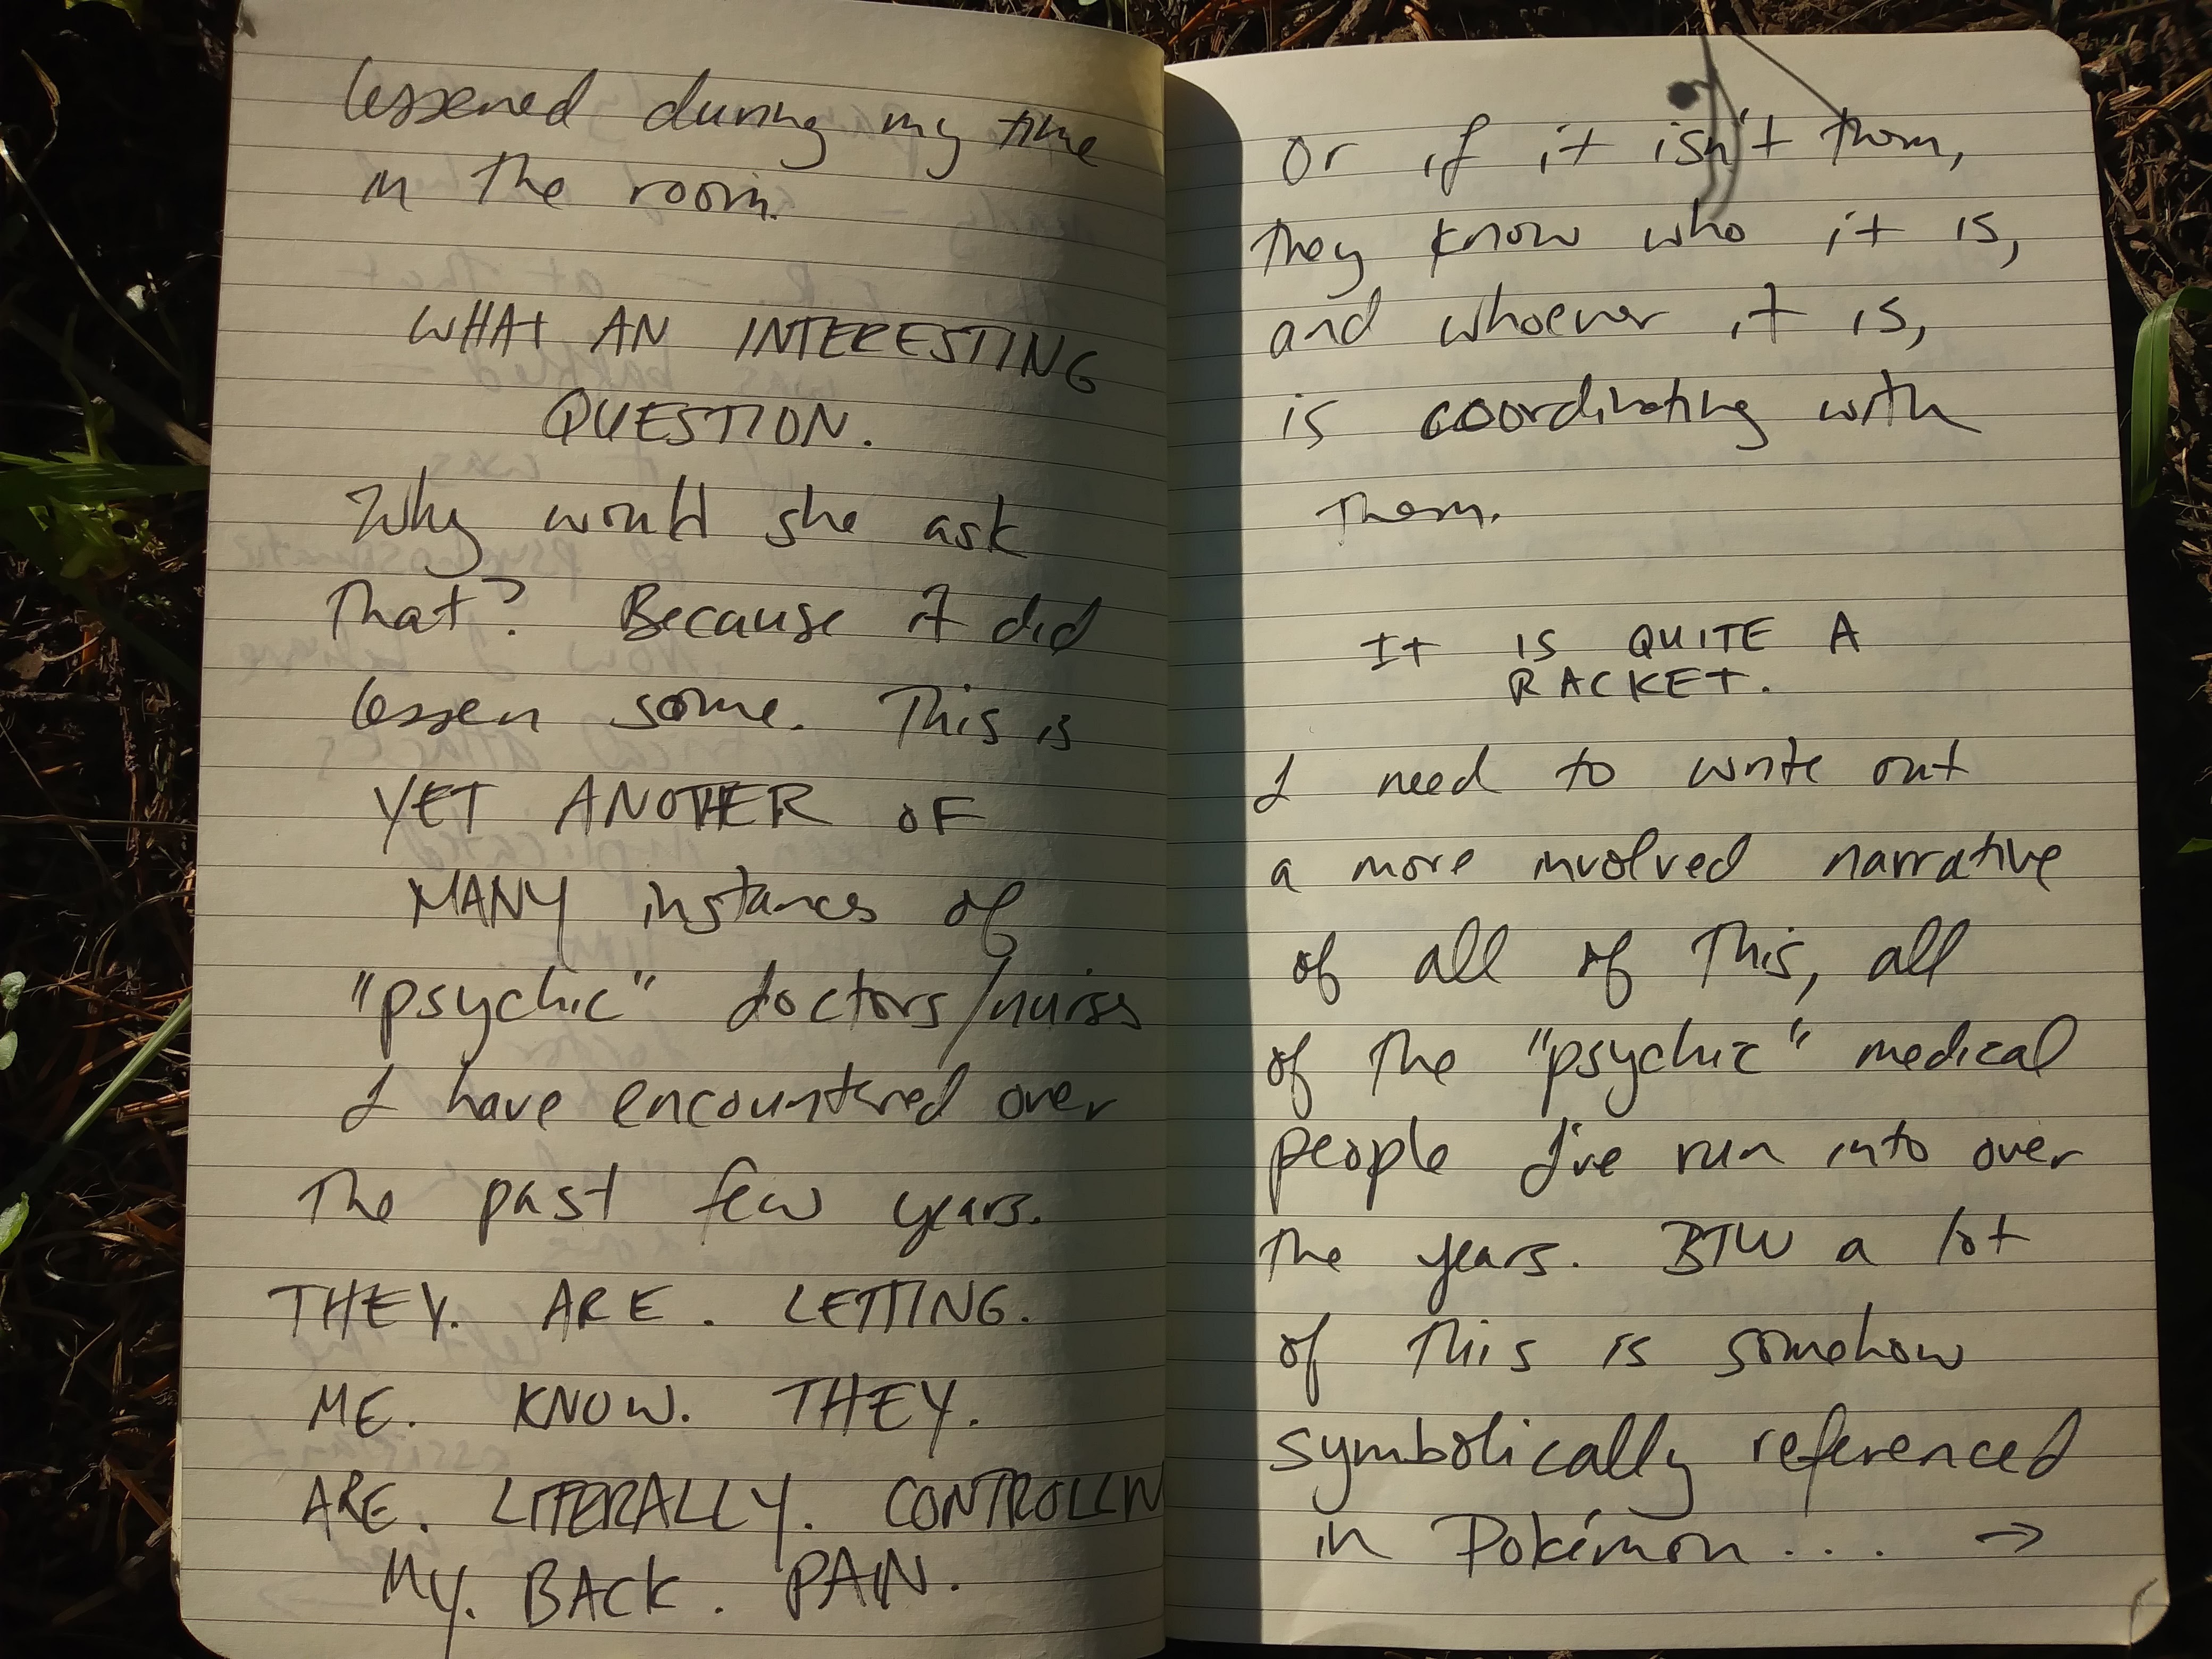 lessened during my time
in the room.
WHAT AN INTERESTING
QUESTION.
Why would she ask
that? Because it did
lessen some. This is
YET ANOTHER OF
MANY instances of
"psychic" doctors/nurses
I have encountered over
the past few years.
THEY. ARE. LETTING.
ME. KNOW. THEY.
ARE. LITERALLY. CONTROLLIN
MY. BACK. PAIN.
Or if it isn't them,
they know who it is,
and whoever it is,
is coordinating with
them.
IT IS QUITE A
RACKET.
I need to write out
a more involved narrative
of all of this, all
of the "psychic" medical
people I've run into over
the years. BTW a lot
of this is somehow
symbolically referenced
in Pokémon... →